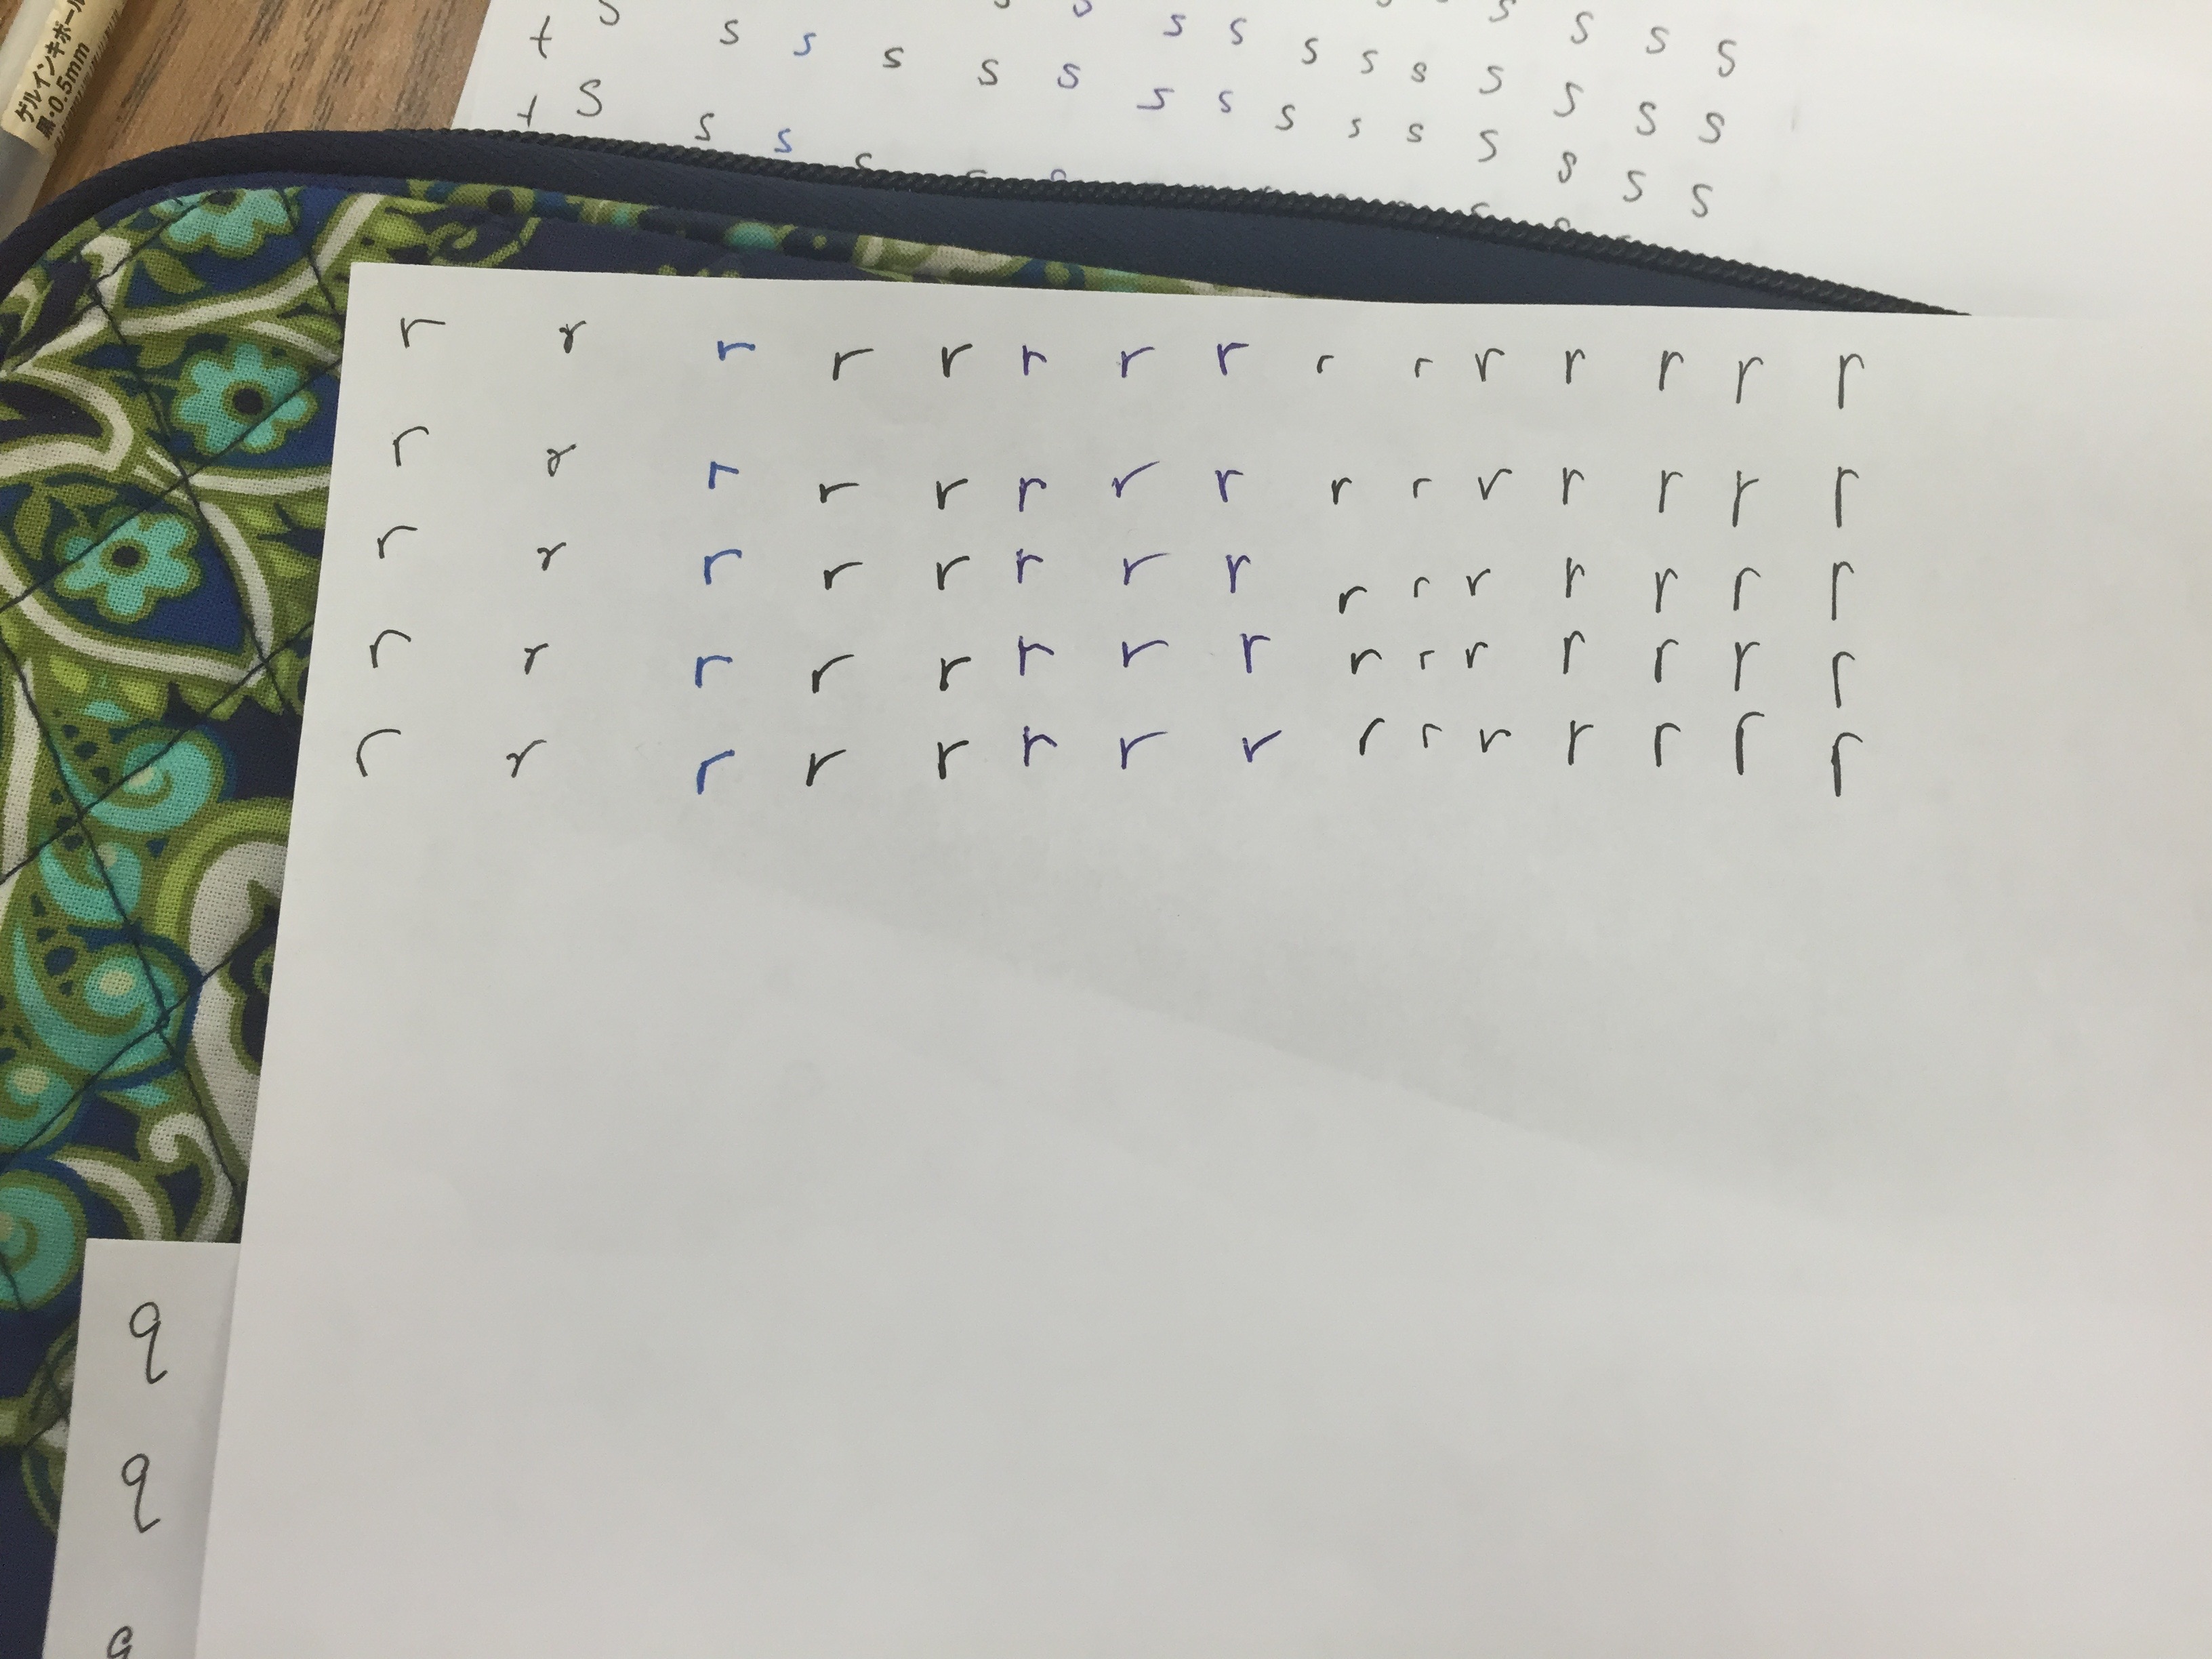 ゲルインキボール
黒・0.5mm
t s s s s s s s s s s s s s s s
t s s s s s s s s s s s s s s
s s s
r r r r r r r r r r r r r r r
r r r r r r r r r r r r r r r
r r r r r r r r r r r r r r r
r r r r r r r r r r r r r r r
r r r r r r r r r r r r r r r
q
q